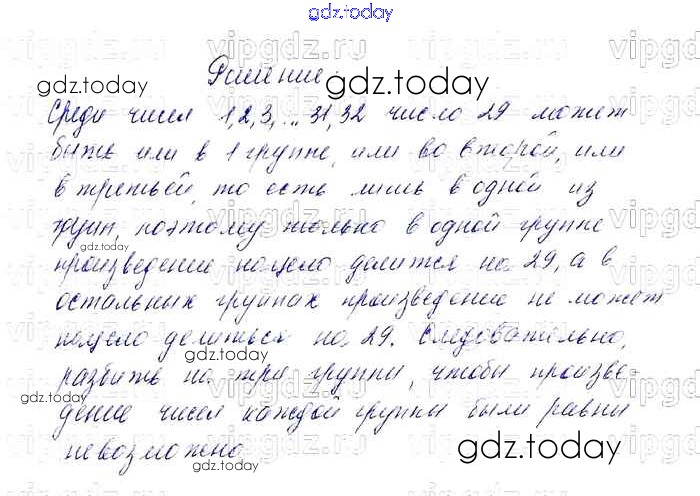 gdz.today
Решение
gdz.today
gdz.today
Среди чисел 1,2,3,...31,32 число 29 может
быть или в 1 группе, или во второй, или
в третьей, то есть лишь в одной из
групп, поэтому только в одной группе
gdz.today
произведение нацело делится на 29, а в
остальных группах произведение не может
нацело делиться на 29. Следовательно,
gdz.today
разбить на три группы, чтобы произве-
gdz.today
дение чисел каждой группы были равны
невозможно
gdz.today
gdz.today
vipgdz.ru
vipgdz.ru
vipgdz.ru
vipgdz.ru